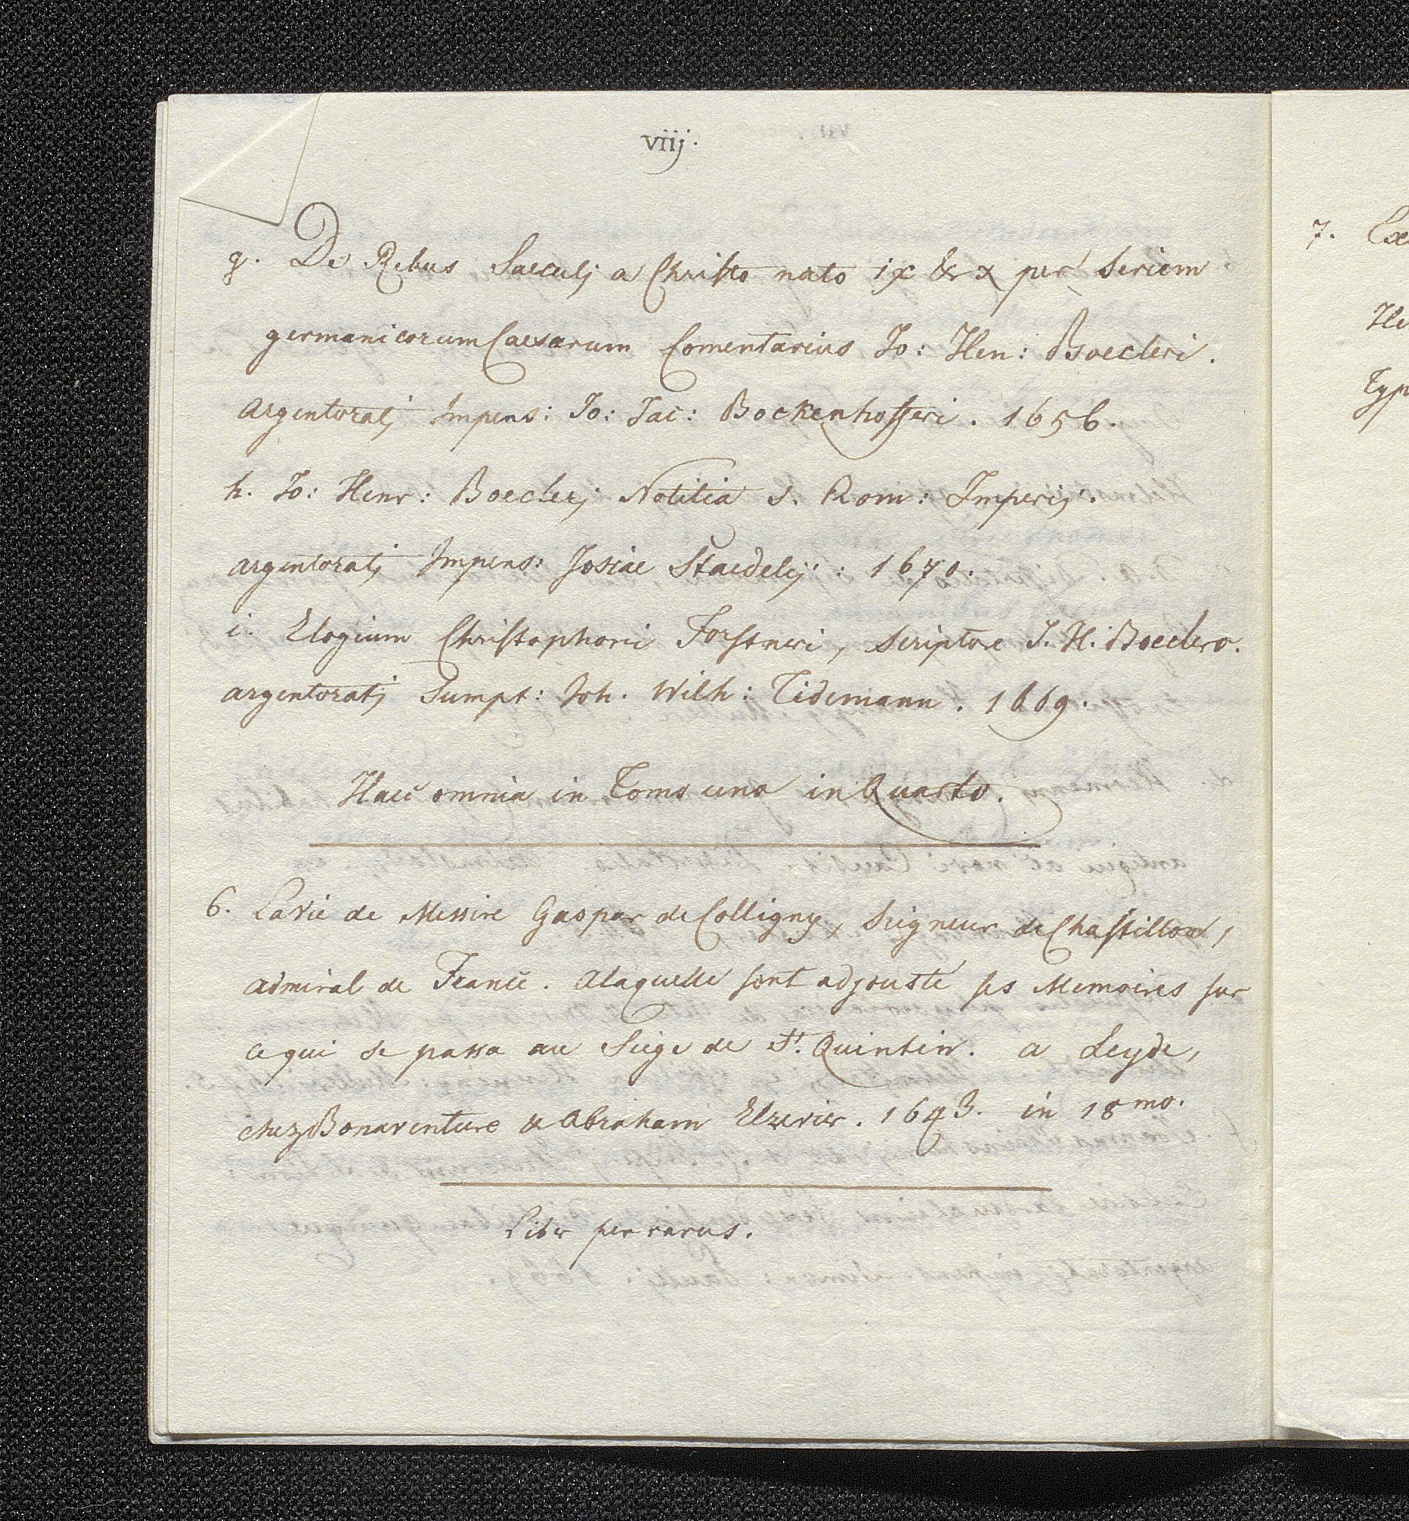 viij.
g. De Rebus Saeculj a Christo nato ix & x per Seriem
germanicorum Caesarum Comentarius Jo: Hen: Boecleri.
argentoratj Impens: Jo: Jac: Bockenhofferi. 1656.
h. Jo: Henr: Boeclerj Notitia S. Rom: Imperij.
argentoratj Impens: Josiae Staedelij: 1670.
i. Elogium Christophori Forstneri, Scriptore J. H. Boeclero.
argentoratj Sumpt: Joh. Wilh: Tidemann. 1669.
Haec omnia in Tomo uno in Quarto.
6. La Vie de Messire Gaspar de Colligny, Seigneur de Chastillon,
admiral de France. Alaquelle sont adjousté ses Memoires sur
ce qui se passa au Siege de St. Quintin. a Leyde,
chez Bonaventure & Abraham Elzevier. 1643. in 18mo.
Liber per rarus.
7.